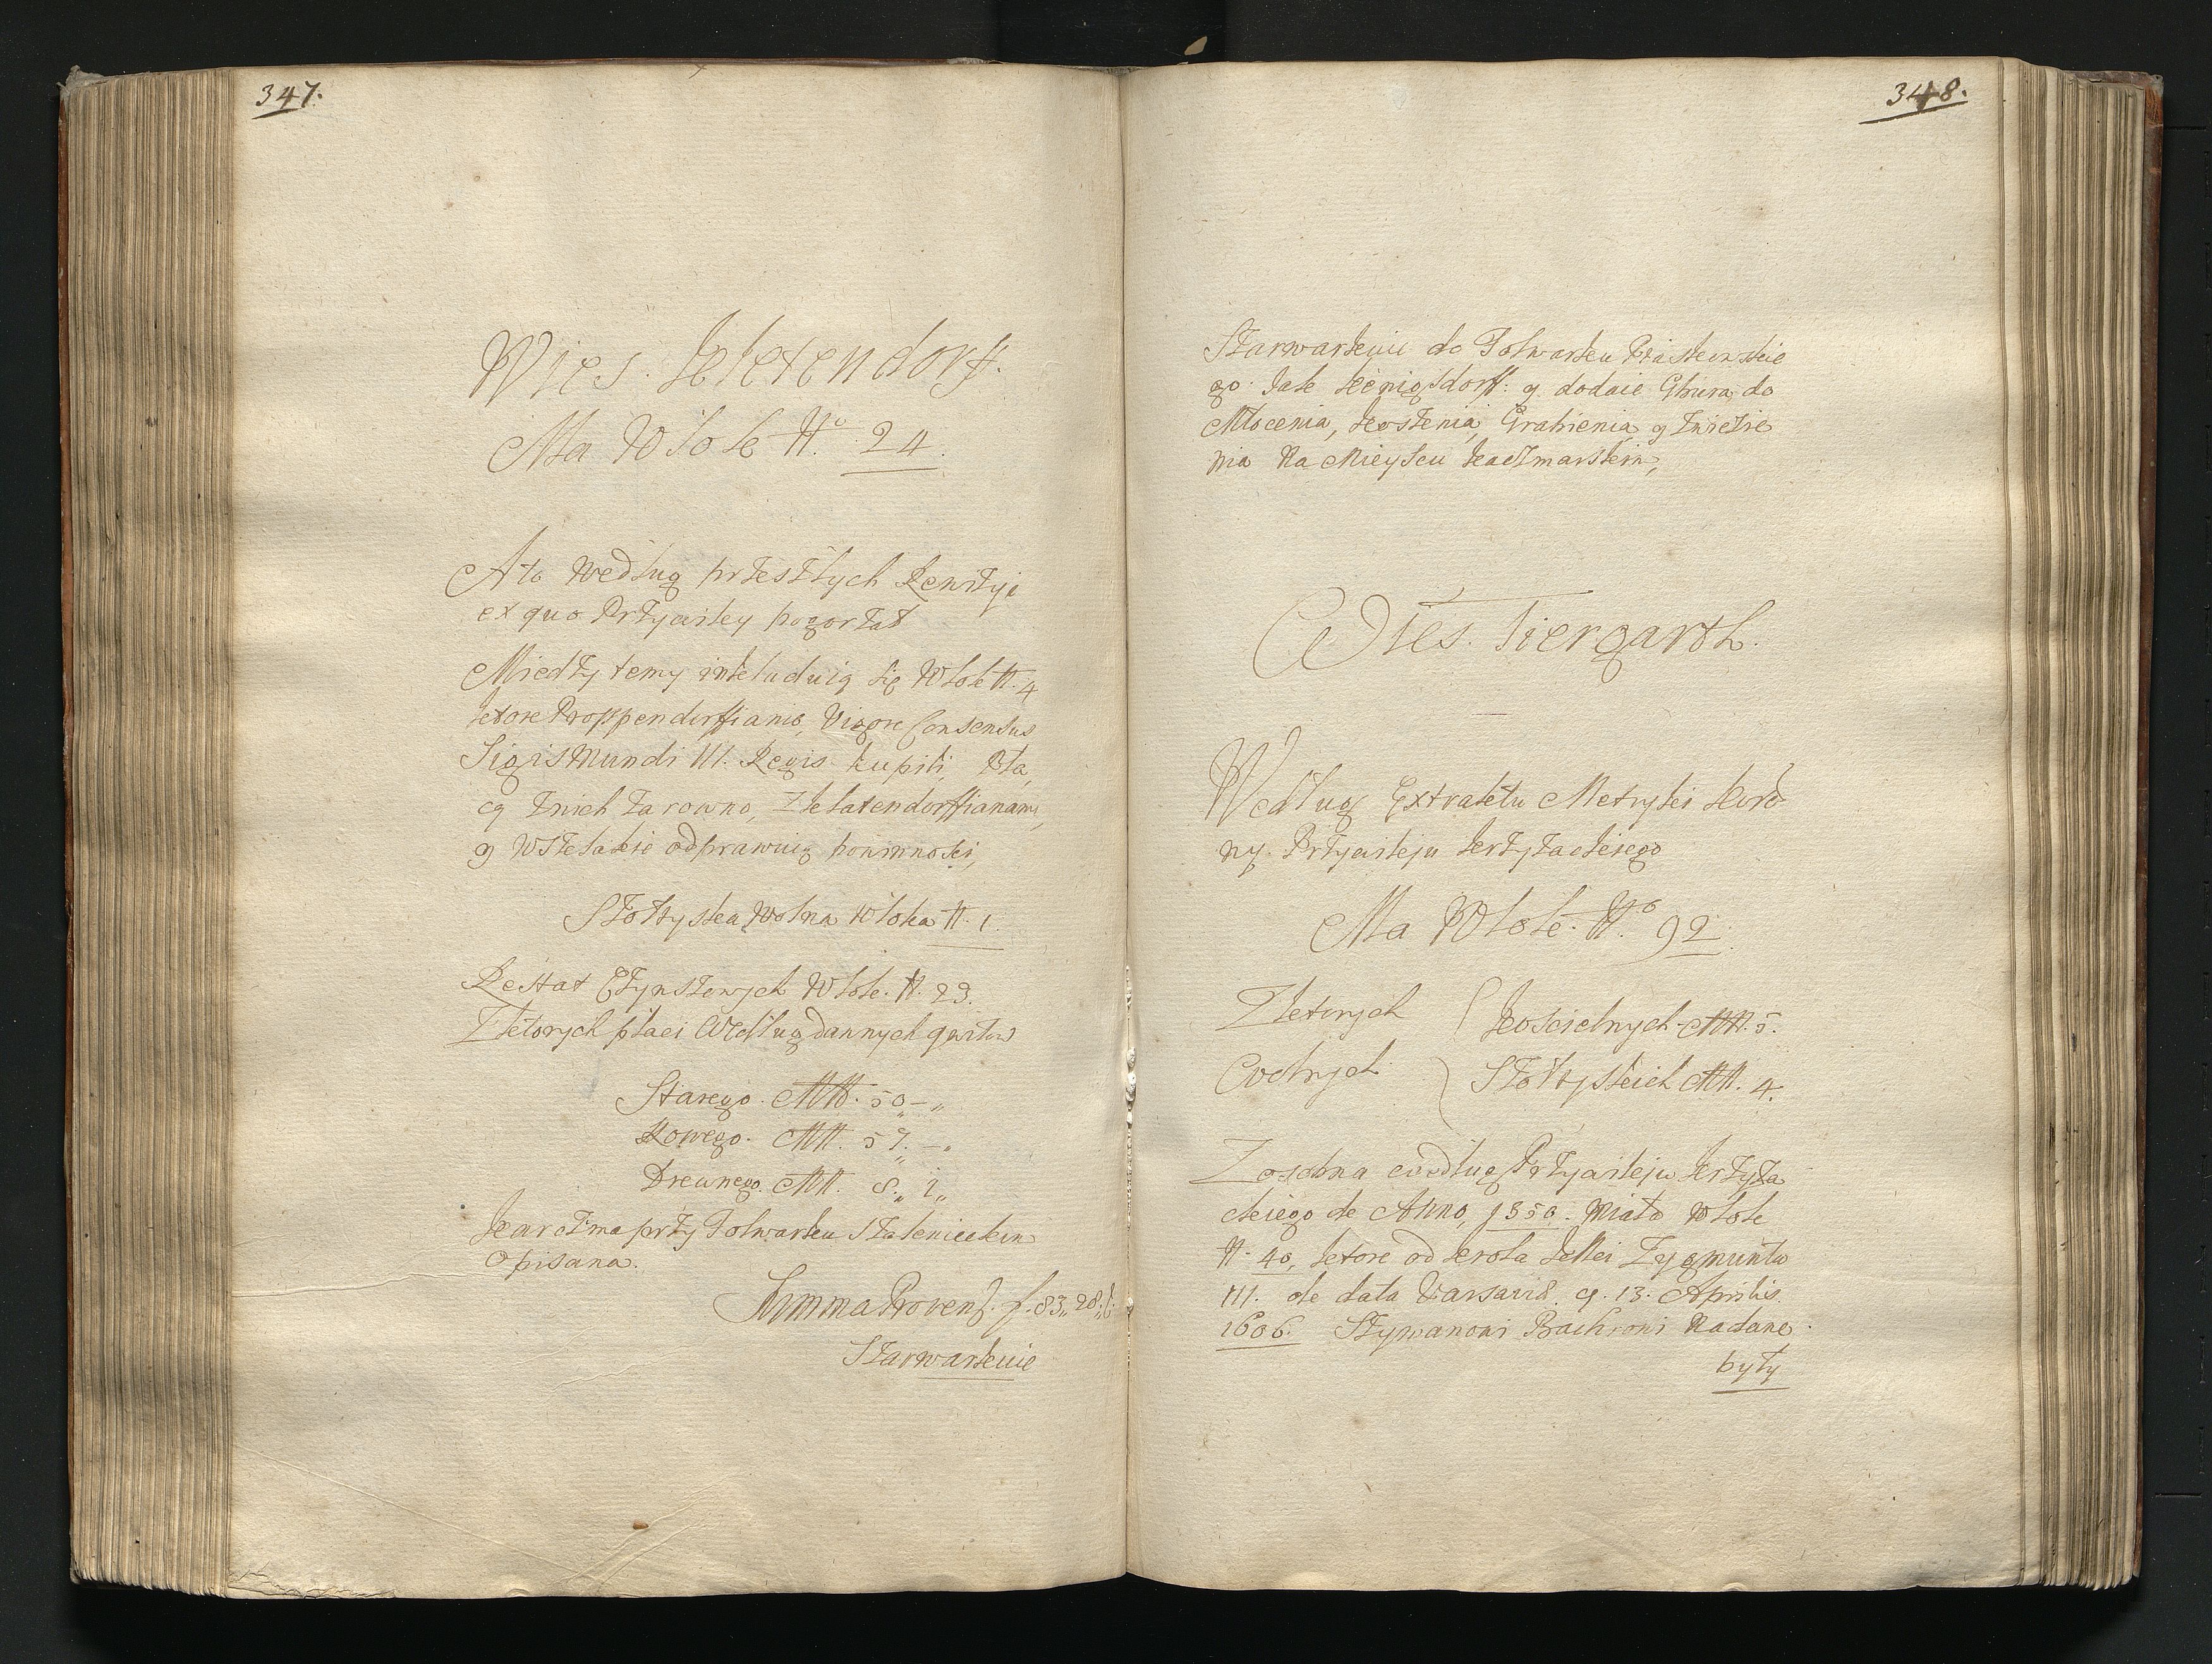 347.
Wies. Kletendorf.
Ma Włok No. 24.
A to według przeszłych Rewizyi
ex quo Przywiley pogorzał
Miedzy temy inkluduią się Włok N. 4
ktore Proppendorffianie, Vigore Consensus
Sigismundi III. Regis kupili, Pła,
cą znich za rowno, z Klatendorffianami,
y wszelakie odprawuią powinnosci,
Szołtyska Wolna Włoka N. 1.
Restat Czynszowych Włok. N. 23.
Z ktorych płaci według dannych qwitow
Starego. MN. 50 „ – „
Nowego. MN. 57. „ – „
Drewnego. MN. 8 „ 1 „
Karczma przy Folwarku Stalenieckim
Opisana.
Summa Provent. f. 83 „ 28 „
Szarwarkuie
348.
Szarwarkuie do Folwarku
go. Jak Kenigsdorff: y dodaie Ghura, do
Młocenia, Koszenia, Grabienia y zwiezie
nia Na Mieyscu Kaczmarskim,
Wies. Tiergarth.
Według Extraktu Metryki Koro
ny. Przywileju Krzyżackiego
Ma Włok. No. 92.
Z ktorych Koscielnych MN. 5.
Wolnych Szołtyskich MN. 4.
Zosobna według Przywileju Krzyża
ckiego de Anno, 1350. Miało Włok
N. 40, ktore od Krola JeMci Zygmunta
III. de data Varsaviæ. 9. 13. Aprilis.
1606. Szymanowi Bachrowi Nadane
były